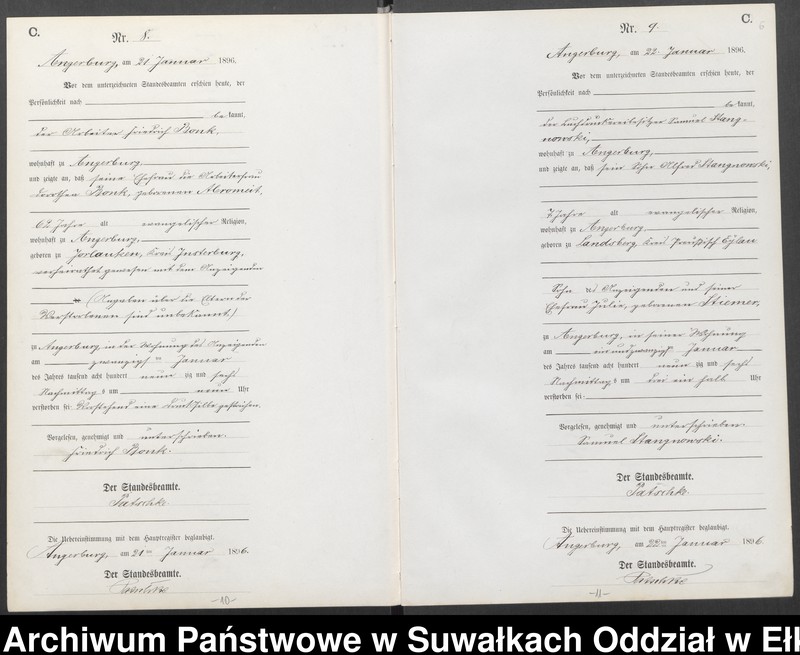 C.
Nr. 8.
Angerburg, am 21. Januar 1896.
Vor dem unterzeichneten Standesbeamten erschien heute, der
Persönlichkeit nach
be kannt,
der Arbeiter Friedrich Bonk,
wohnhaft zu Angerburg,
und zeigte an, daß seine Ehefrau die Arbeiterfrau
Dorothea Bonk, geborenen Abromeit,
62 Jahre alt evangelischer Religion,
wohnhaft zu Angerburg,
geboren zu Jorlauken, Kreis Insterburg,
verheirathet gewesen mit dem Anzeigenden
(Angaben über die Eltern der
Verstorbenen sind unbekannt.)
zu Angerburg, in der Wohnung des Anzeigenden
am zwanzigsten Januar
des Jahres tausend acht hundert neun zig und sechs
Nachmittags um neun Uhr
verstorben sei. Vorstehend eine Druckzeile gestrichen.
Vorgelesen, genehmigt und unterschrieben.
Friedrich Bonk.
Der Standesbeamte.
Patschke.
Die Uebereinstimmung mit dem Hauptregister beglaubigt.
Angerburg, am 21ten Januar 1896.
Der Standesbeamte.
Patschke
-10-
C.
6
Nr. 9.
Angerburg, am 22. Januar 1896.
Vor dem unterzeichneten Standesbeamten erschien heute, der
Persönlichkeit nach
be kannt,
der Buchdruckereibesitzer Samuel Stang-
nowski,
wohnhaft zu Angerburg,
und zeigte an, daß sein Sohn Alfred Stangnowski,
7 Jahre alt evangelischer Religion,
wohnhaft zu Angerburg
geboren zu Landsberg Kreis Preußisch Eylau
Sohn des Anzeigenden und seiner
Ehefrau Julie, geborenen Stiemer,
zu Angerburg, in seiner Wohnung
am einundzwanzigsten Januar
des Jahres tausend acht hundert neun zig und sechs
Nachmittags um drei ein halb Uhr
verstorben sei.
Vorgelesen, genehmigt und unterschrieben.
Samuel Stangnowski.
Der Standesbeamte.
Patschke.
Die Uebereinstimmung mit dem Hauptregister beglaubigt.
Angerburg, am 22ten Januar 1896.
Der Standesbeamte.
Patschke
-11-
Archiwum Państwowe w Suwałkach Oddział w Ełk